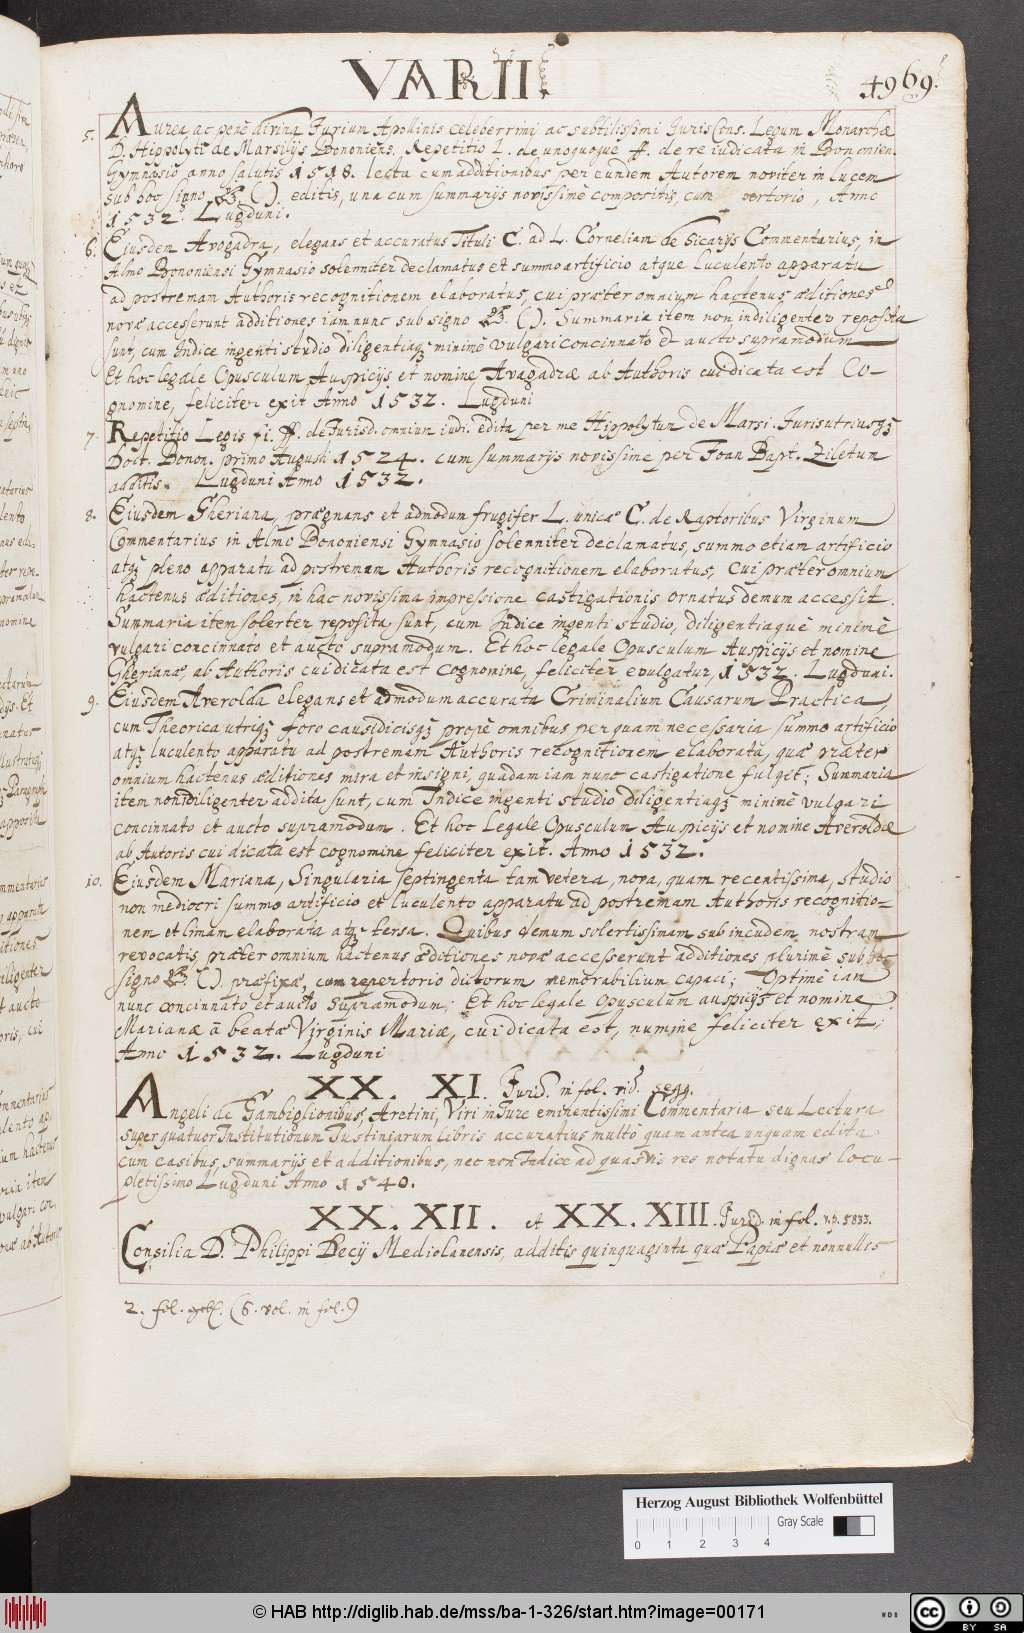 VARII.
4969.
5. Aurea, ac penè divina Iurium Apollinis celeberrimi ac subtilissimi Iuriscons. Legum Monarchæ
D. Hippolyti de Marsilijs Bononiens. Repetitio L. de unoquoque ff. de re iudicata in Bononien.
Gymnasio anno salutis 1518. lecta cum additionibus per eundem Autorem noviter in lucem
sub hoc signo ( ). editis, una cum summarijs novissimè compositis, cum vertorio, Anno
1532. Lugduni.
6. Eiusdem Avogadra, elegans et accuratus Tituli C. ad L. Corneliam de Sicarijs Commentarius, in
Almo Bononiensi Gymnasio solenniter declamatus et summo artificio atque luculento apparatu
ad postreman Authoris recognitionem elaboratus, cui præter omnium hactenus æditiones
novæ accesserunt additiones iam nunc sub signo ( ). Summaria item non indiligenter reposita
sunt, cum Indice ingenti studio diligentiaqꝫ minimè vulgari concinnato et aucto supramodum
Et hoc legale Opusculum Auspicijs et nomine Avagadræ ab Authoris cui dicata est Co-
gnomine, feliciter exit Anno 1532. Lugduni
7. Repetitio Legis fi. ff. de Iurisd. omnium iudi. edita per me Hippolytum de Marsi. Iuris utriusqꝫ
Doct. Bonon. primo Augusti 1524. cum summarijs novissime per Joan Bapt. Ziletum
additis. Lugduni Anno 1532.
8. Eiusdem Gheriana, prægnans et admodum frugifer L. unicæ C. de Raptoribus Virginum
Commentarius in Almo Bononiensi Gymnasio solenniter declamatus, summo etiam artificio
atqꝫ pleno apparatu ad postremam Authoris recognitionem elaboratus, cui præter omnium
hactenus æditiones, in hac novissima impressione castigationis ornatus demum accessit.
Summaria item solerter reposita sunt, cum Indice ingenti studio, diligentiaque minimè
vulgari concinnato et aucto supramodum. Et hoc legale Opusculum Auspicijs et nomine
Gherianæ, ab Authoris cui dicata est cognomine, feliciter evulgatur, 1532. Lugduni.
9. Eiusdem Averolda elegans et admodum accurata Criminalium Causarum Practica,
cum Theorica utriqꝫ foro causidicisqꝫ propè omnibus perquam necessaria summo artificio
atqꝫ luculento apparatu ad postremam Authoris recognitionem elaborata, quæ præter
omnium hactenus æditiones mira et insigni, quadam iam nunc castigatione fulget; Summaria
item non indiligenter addita sunt, cum Indice ingenti studio diligentiaqꝫ minimè vulgari
concinnato et aucto supramodum. Et hoc Legale Opusculum Auspicijs et nomine Averoldæ
ab Autoris cui dicata est cognomine feliciter exit. Anno 1532.
10. Eiusdem Mariana, Singularia septingenta tam vetera, nova, quam recentissima, studio
non mediocri summo artificio et luculento apparatu ad postremam Authoris recognitio-
nem et limam elaborata atqꝫ tersa. Quibus demum solertissimam sub incudem nostram
revocatis præter omnium hactenus æditiones novæ accesserunt additiones plurimè sub hoc
signo ( ). præfixæ, cum repertorio dictorum memorabilium capaci; Optimè iam
nunc concinnato et aucto supramodum; Et hoc legale opusculum auspicijs et nomine
Marianæ à beatæ Virginis Mariæ, cui dicata est, numine feliciter exit;
Anno 1532. Lugduni
XX. XI. Jurid. in fol. vid. seqq.
Angeli de Gambiglionibus, Aretini, Viri in Jure eminentissimi Commentaria seu Lectura
super quatuor Institutionum Justiniarum libris accuratius multò quam antea unquam edita
cum casibus, summarijs et additionibus, nec non Indice ad quasvis res notatu dignas locu-
pletissimo Lugduni Anno 1540.
XX. XII. et XX. XIII. Jurid. in fol. v. p. 5833.
Consilia D. Philippi Decij Mediolanensis, additis quinquaginta quæ Papiæ et nonnullis
2. fol. (6. vol. in fol.)
Herzog August Bibliothek Wolfenbüttel
Gray Scale
0 1 2 3 4
© HAB http://diglib.hab.de/mss/ba-1-326/start.htm?image=00171
WDB
cc BY SA